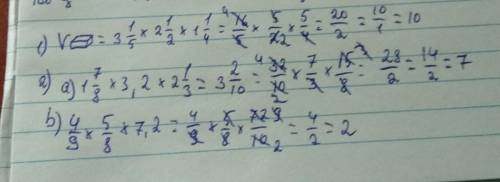 1) V▱ = 3 1/5 × 2 1/2 × 1 1/4 = 16/5 × 5/2 × 5/4 = 20/2 = 10/1 = 10
2) a) 1 7/8 × 3,2 × 2 1/3 = 3 2/10 = 32/10 × 7/3 × 15/8 = 28/2 = 14/2 = 7
b) 4/9 × 5/8 × 7,2 = 4/9 × 5/8 × 72/10 = 4/2 = 2